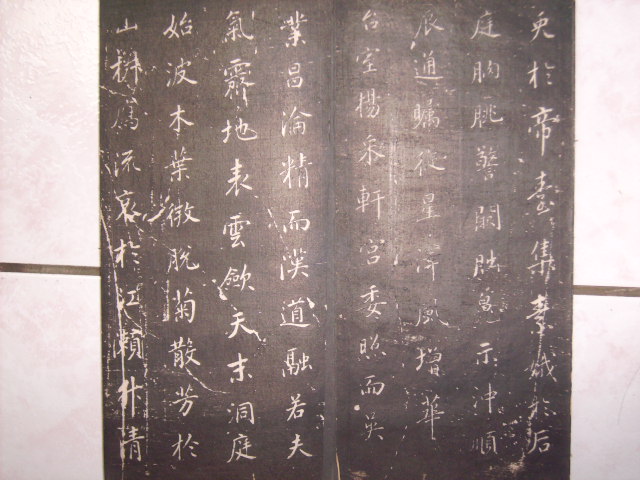 兔於帝臺集素娥於后
庭朒朓警闕朏魄示沖順
辰通爥從星澤風增華
台室揚采軒宮委照而吳
業昌淪精而漢道融若夫
氣霽地表雲斂天末洞庭
始波木葉微脫菊散芳於
山椒鴈流哀於江瀨升清